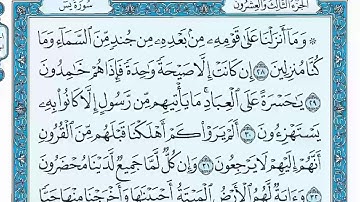 الجزء الثالث والعشرون سورة يس
۞ وَمَا أَنزَلْنَا عَلَىٰ قَوْمِهِۦ مِنۢ بَعْدِهِۦ مِن جُندٍ مِّنَ ٱلسَّمَآءِ وَمَا
كُنَّا مُنزِلِينَ ٢٨ إِن كَانَتْ إِلَّا صَيْحَةً وَٰحِدَةً فَإِذَا هُمْ خَٰمِدُونَ
٢٩ يَٰحَسْرَةً عَلَى ٱلْعِبَادِ مَا يَأْتِيهِم مِّن رَّسُولٍ إِلَّا كَانُوا۟ بِهِۦ
يَسْتَهْزِءُونَ ٣٠ أَلَمْ يَرَوْا۟ كَمْ أَهْلَكْنَا قَبْلَهُم مِّنَ ٱلْقُرُونِ
أَنَّهُمْ إِلَيْهِمْ لَا يَرْجِعُونَ ٣١ وَإِن كُلٌّ لَّمَّا جَمِيعٌ لَّدَيْنَا مُحْضَرُونَ
٣٢ وَءَايَةٌ لَّهُمُ ٱلْأَرْضُ ٱلْمَيْتَةُ أَحْيَيْنَٰهَا وَأَخْرَجْنَا مِنْهَا حَبًّا